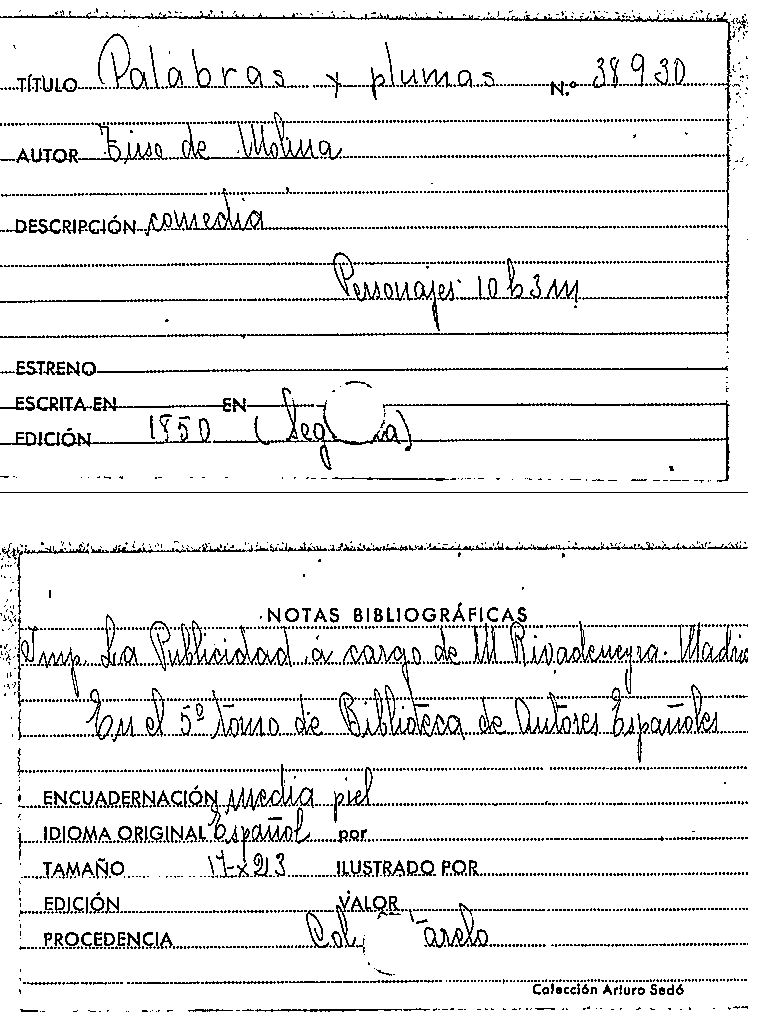 TÍTULO Palabras y plumas N.º 38930
AUTOR Tirso de Molina
DESCRIPCIÓN comedia
Personajes: 10 h 3 m
ESTRENO
ESCRITA EN EN
EDICIÓN 1850
NOTAS BIBLIOGRÁFICAS
Imp. La Publicidad á cargo de M Rivadeneyra. Madrid
En el 5º tomo de Biblioteca de Autores Españoles
ENCUADERNACIÓN media piel
IDIOMA ORIGINAL Español por
TAMAÑO 17x23 ILUSTRADO POR
EDICIÓN VALOR
PROCEDENCIA Col.
Colección Arturo Sedó